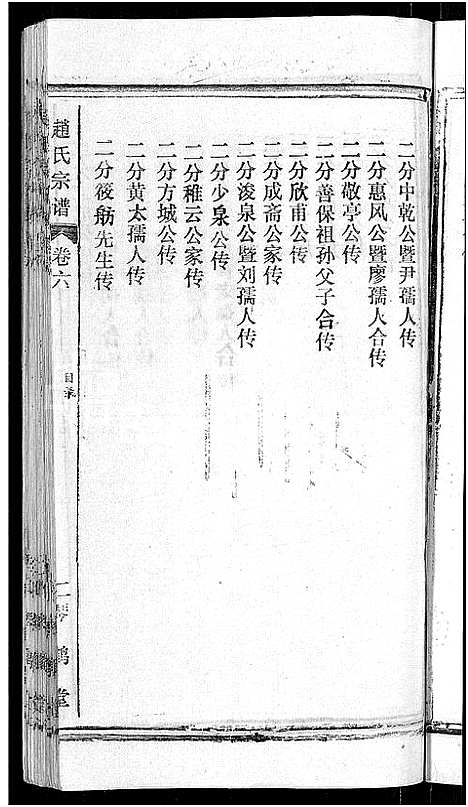 二分中乾公暨尹孺人传
二分惠风公暨廖孺人合传
二分敬亭公传
二分善保祖孙父子合传
二分欣甫公传
二分成斋公家传
二分浚泉公暨刘孺人传
二分少泉公传
二分稚云公家传
二分方城公传
二分黄太孺人传
二分后舫先生传
趙氏宗谱
卷六
目录
二
琴鹤堂